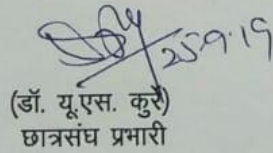 25-9-19
(डॉ. यू.एस. कुर्रे)
छात्रसंघ प्रभारी